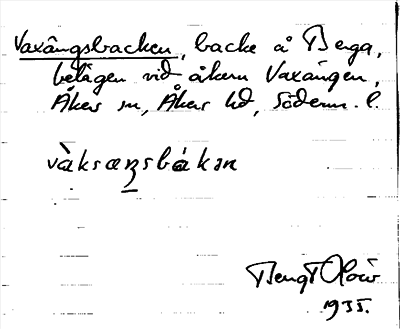 Vaxängsbacken, backe å Berga,
belägen vid åkern Vaxängen,
Åkers sn, Åkers hd, Söderm. l.
vàksæŋsbákən
Bengt Olow
1935.